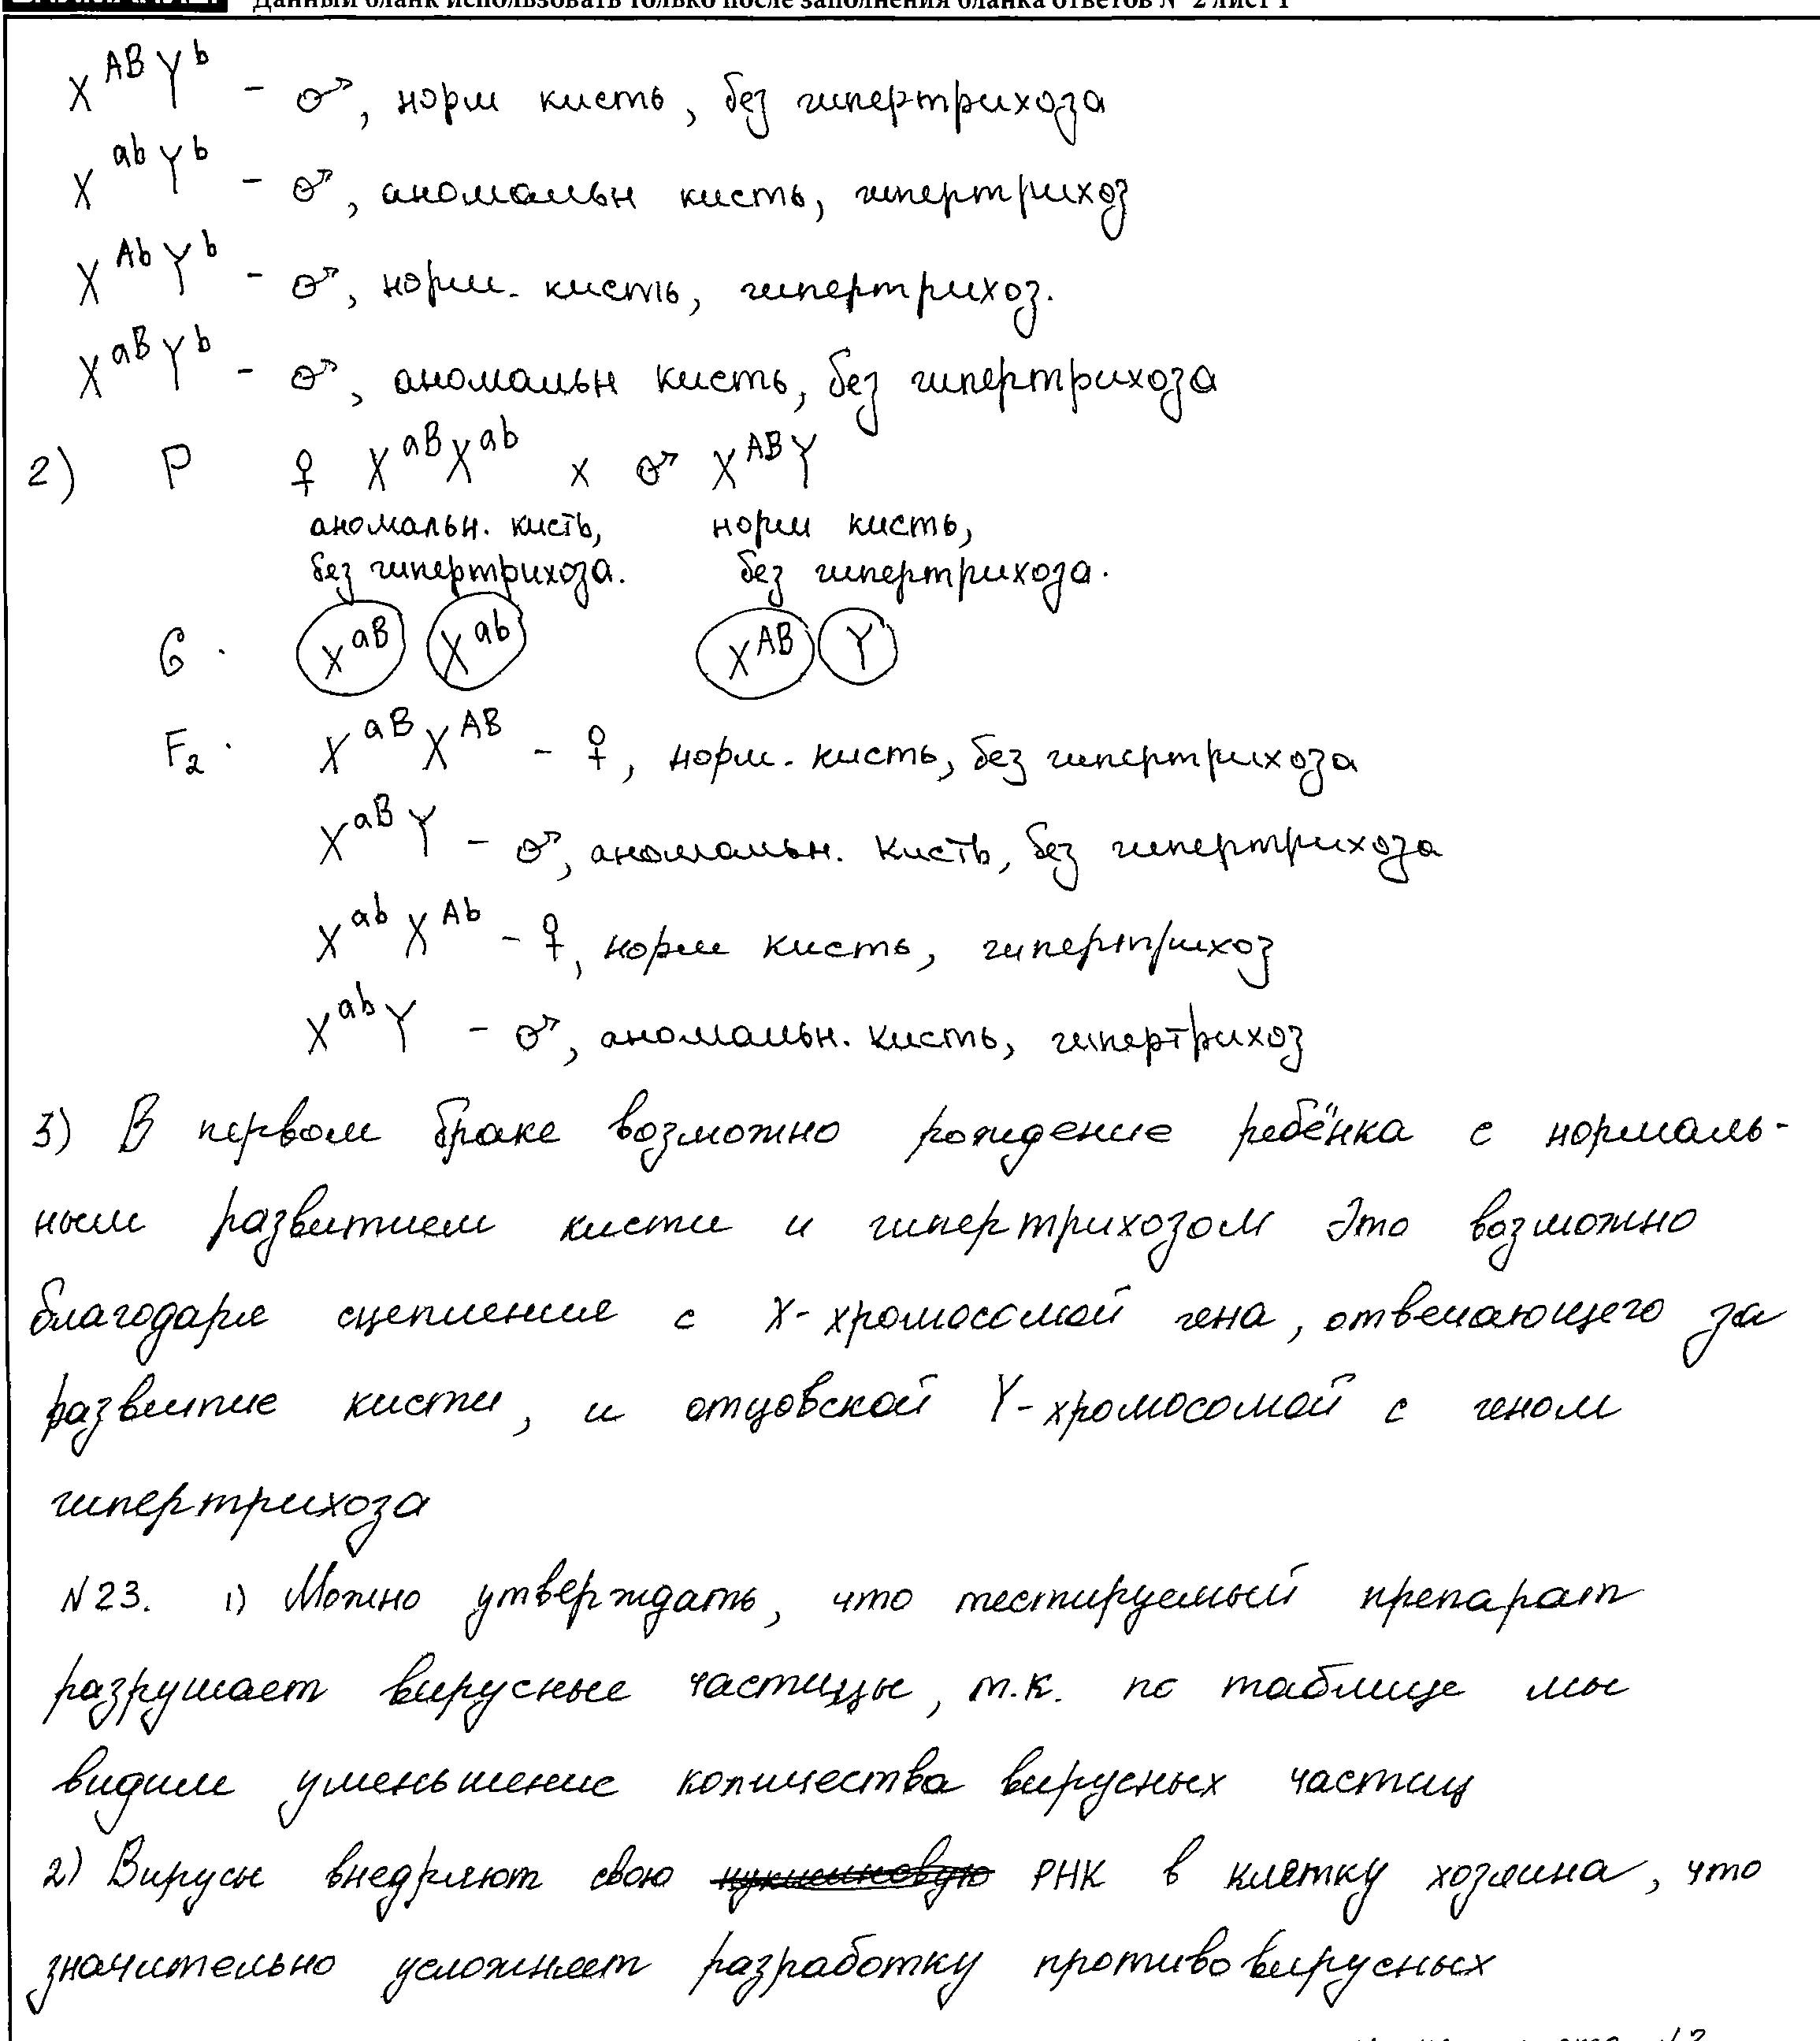 Данный бланк использовать только после заполнения бланка ответов № 2 лист 1
X^AB Y^b - ♂, норм кисть, без гипертрихоза
X^ab Y^b - ♂, аномальн кисть, гипертрихоз
X^Ab Y^b - ♂, норм. кисть, гипертрихоз.
X^aB Y^b - ♂, аномальн кисть, без гипертрихоза
2) P ♀ X^aB X^ab x ♂ X^AB Y
аномальн. кисть, норм кисть,
без гипертрихоза. без гипертрихоза.
G. X^aB X^ab X^AB Y
F2. X^aB X^AB - ♀, норм. кисть, без гипертрихоза
X^aB Y - ♂, аномальн. кисть, без гипертрихоза
X^ab X^Ab - ♀, норм кисть, гипертрихоз
X^ab Y - ♂, аномальн. кисть, гипертрихоз
3) В первом браке возможно рождение ребёнка с нормаль-
ным развитием кисти и гипертрихозом Это возможно
благодаря сцеплению с X-хромосомой гена, отвечающего за
развитие кисти, и отцовской Y-хромосомой с геном
гипертрихоза
N23. 1) Можно утверждать, что тестируемый препарат
разрушает вирусные частицы, т.к. по таблице мы
видим уменьшение количества вирусных частиц
2) Вирусы внедряют свою РНК в клетку хозяина, что
значительно усложняет разработку противовирусных